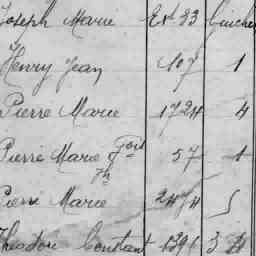 Joseph Marie Ext 23 Guiche
Henry Jean 107 1
Pierre Marie 1724 4
Pierre Marie 57 1
Pierre Marie 2474
Théodore Constant 1391 3